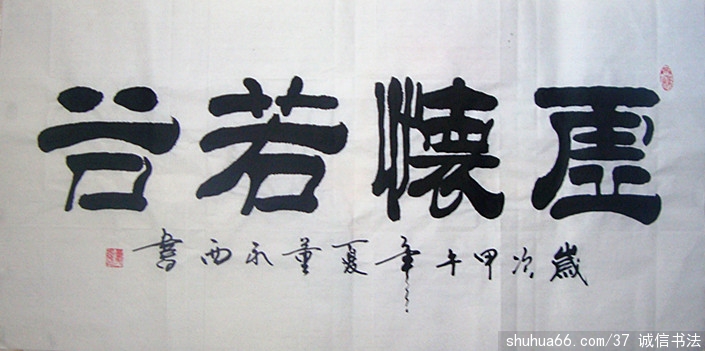 虚懷若谷
歲次甲午年夏董永西書
shuhua66.com/37 诚信书法